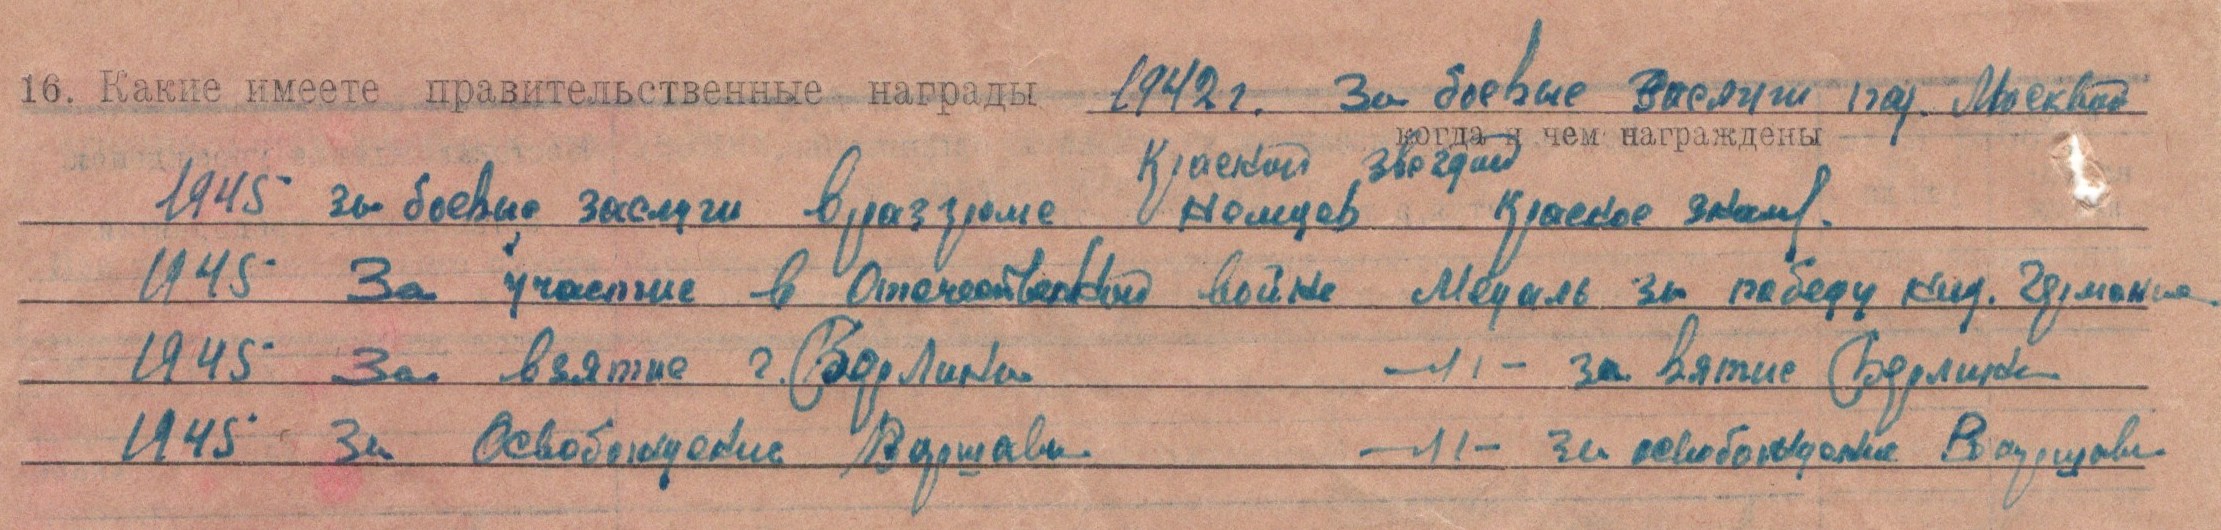 16. Какие имеете правительственные награды 1942 г. За боевые заслуги под. Москвой
когда и чем награждены
Красной звездой
1945 за боевые заслуги в разгроме немцев Красное знам.
1945 За участие в Отечественной войне Медаль за победу над. Германие
1945 За взятие г. Берлина —//— за вятие Берлина
1945 За Освобождение Варшавы —//— за освобождение Варшавы